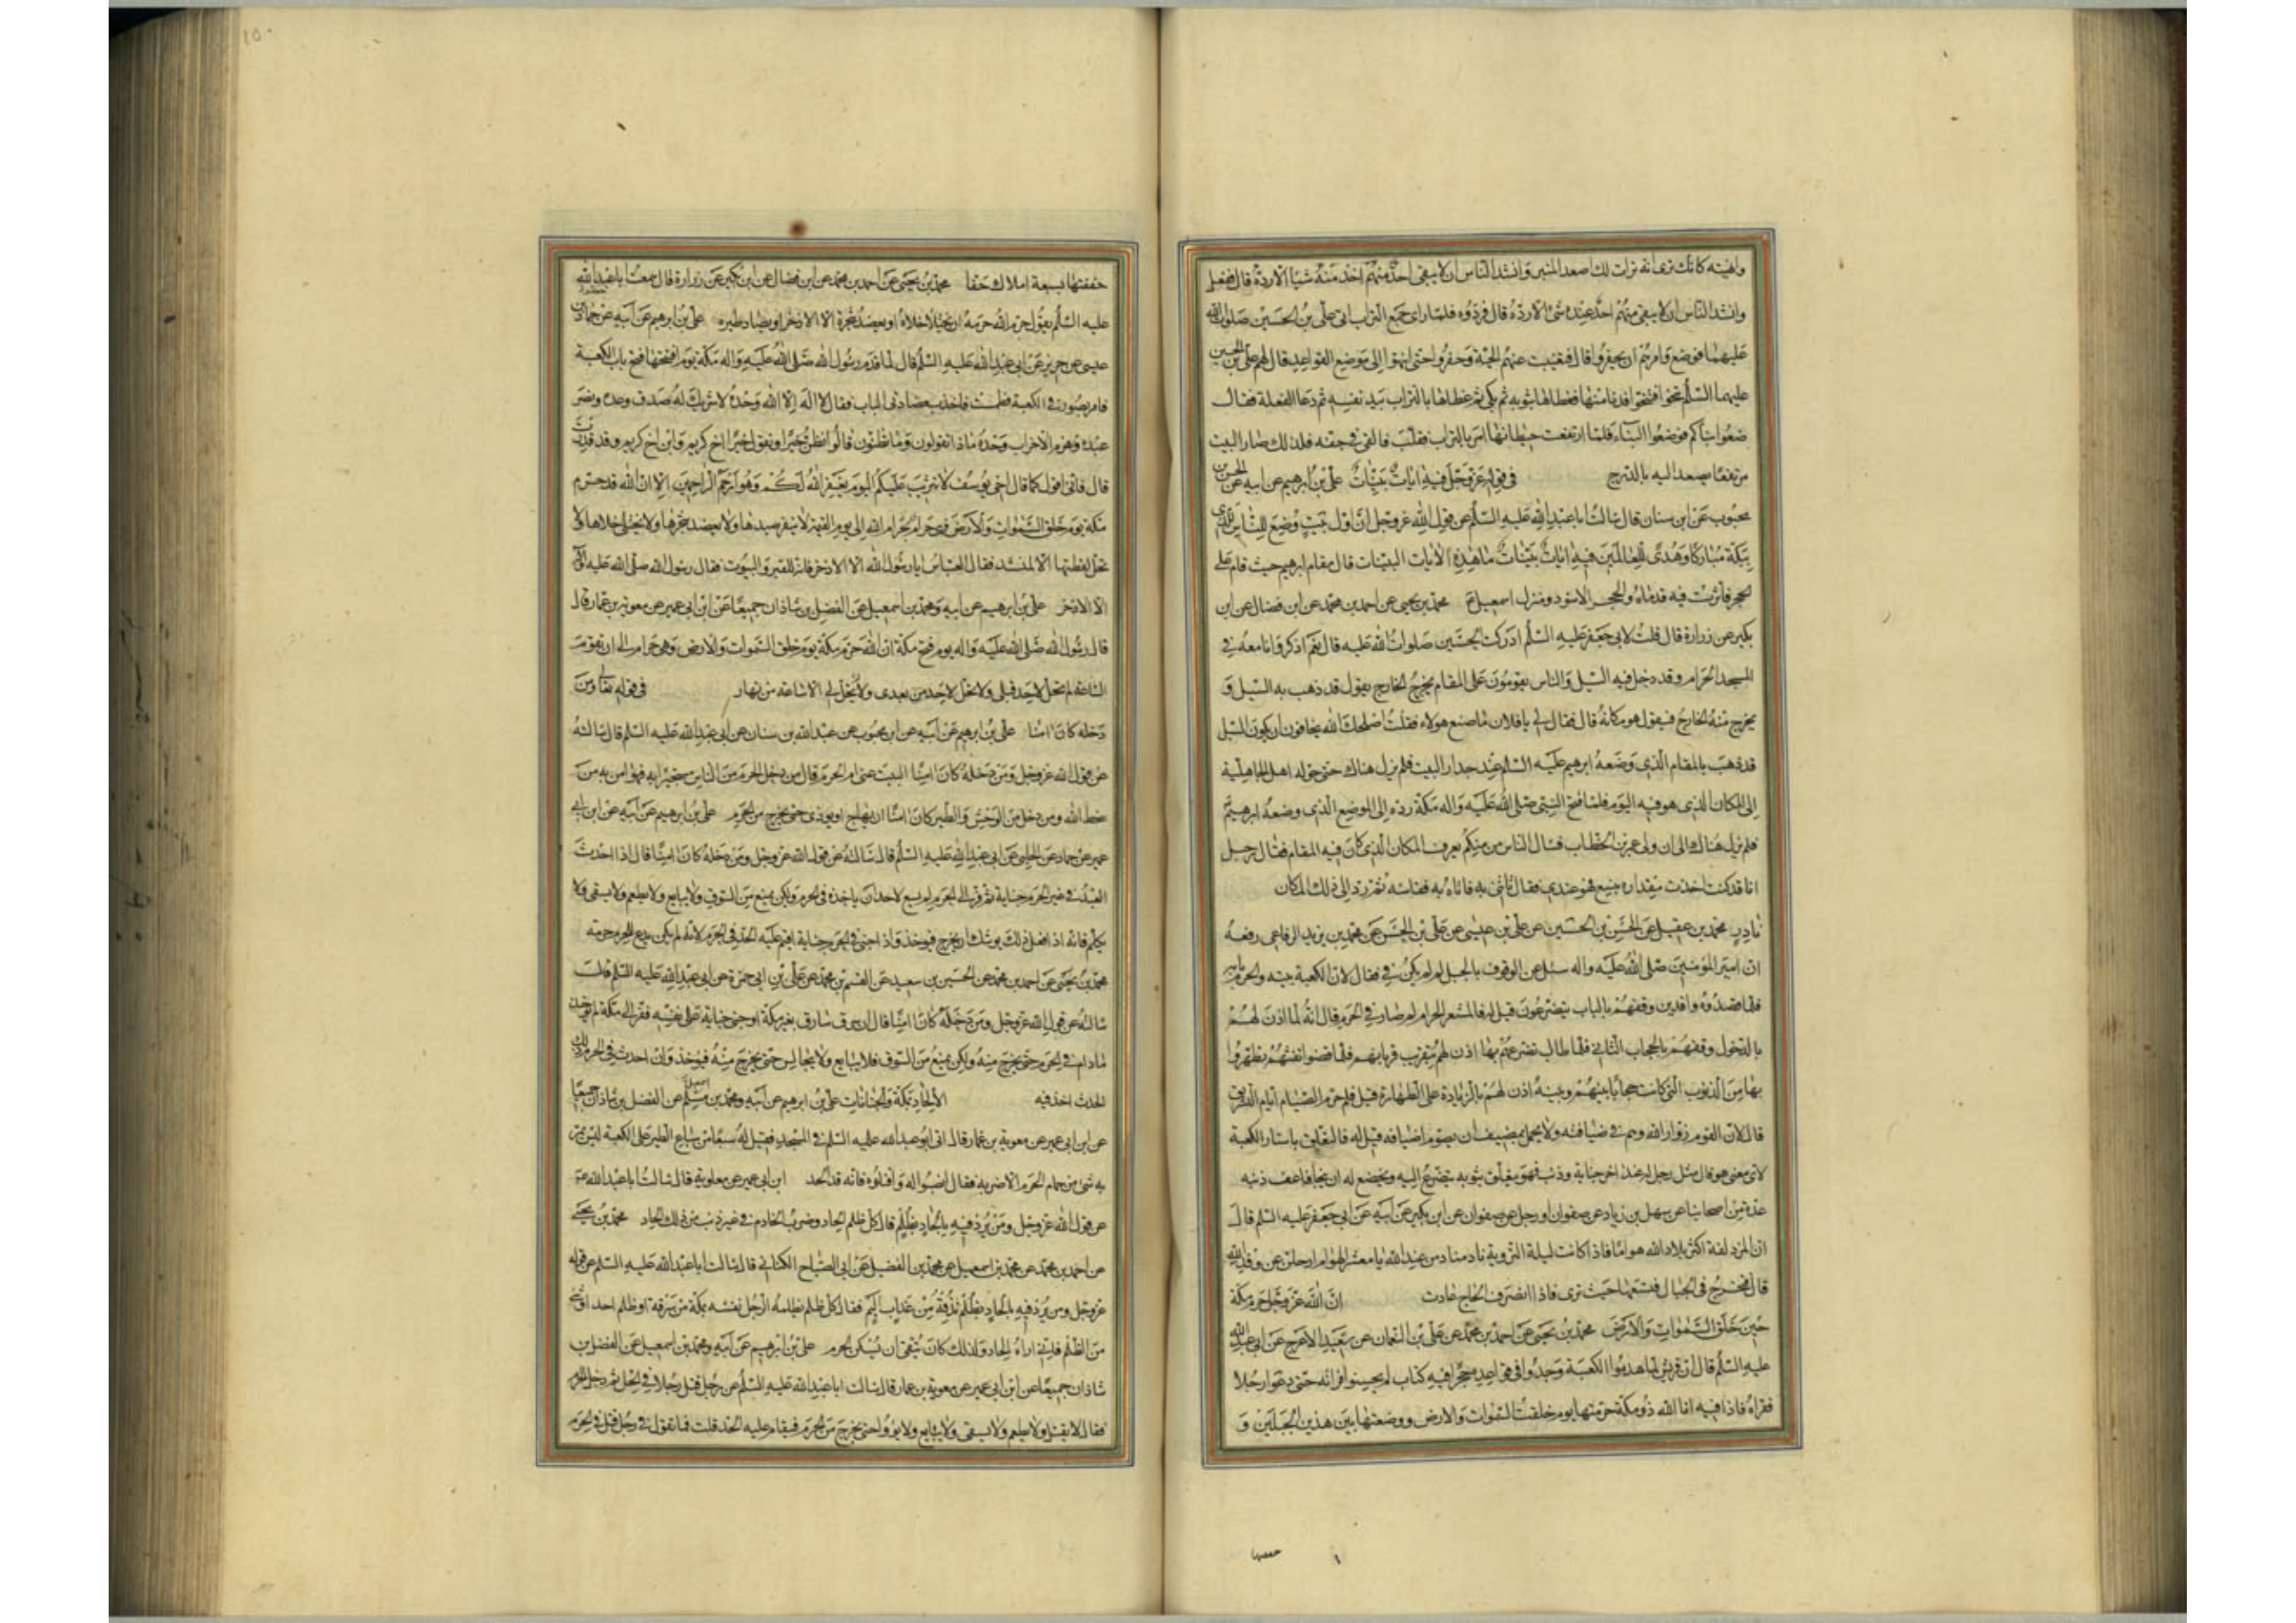 وانهبته كانك ترى انه تراث لك اصعد المنبر وانشد الناس ان لا يبقى احد منهم اخذ منه شيئا الا رده قال ففعل
وانشد الناس ان لا يبقى منهم احد عنده شئ الا رده قال فردوه فلما راى جمع التراب اتى على بن الحسين صلوات الله
عليهما فوضع وامرهم ان يحفروا قال فتغيبت عنهم الحية وحفروا حتى انتهوا الى موضع القواعد قال لهم على بن الحسين
عليهما السلم تنحوا فتنحوا فدنا منها فغطاها بثوبه ثم بكى ثم غطاها بالتراب بيد نفسه ثم دعا الفعلة فقال
ضعوا بناءكم فوضعوا البناء فلما ارتفعت حيطانها امر بالتراب فقلب فالقى فى جوفه فلذلك صار البيت
مرتفعا يصعد اليه بالدرج فى قوله عز وجل فيه ايات بينات على بن ابرهيم عن ابيه عن الحسن بن
محبوب عن ابن سنان قال سالت ابا عبد الله عليه السلم عن قول الله عز وجل ان اول بيت وضع للناس للذى
ببكة مباركا وهدى للعالمين فيه ايات بينات ما هذه الايات البينات قال مقام ابرهيم حيث قام على
الحجر فاثرت فيه قدماه والحجر الاسود ومنزل اسمعيل ع محمد بن يحيى عن احمد بن محمد عن ابن فضال عن ابن
بكير عن زرارة قال قلت لابى جعفر عليه السلم ادركت الحسين صلوات الله عليه قال نعم اذكر وانا معه فى
المسجد الحرام وقد دخل فيه السيل والناس يقومون على المقام يخرج الخارج يقول قد ذهب به السيل و
يخرج منه الخارج فيقول هو مكانه قال فقال لى يا فلان ما صنع هولاء فقلت اصلحك الله يخافون ان يكون السيل
قد ذهب بالمقام الذى وضعه ابرهيم عليه السلم عند جدار البيت فلم يزل هناك حتى حوله اهل الجاهلية
الى المكان الذى هو فيه اليوم فلما فتح النبى صلى الله عليه واله مكة رده الى الموضع الذى وضعه ابرهيم ع
فلم يزل هناك الى ان ولى عمر بن الخطاب فسال الناس من منكم يعرف المكان الذى كان فيه المقام فقال رجل
انا قد كنت اخذت مقداره بنسع فهو عندى فقال تاتنى به فاتاه به فقاسه ثم رده الى ذلك المكان
نادر محمد بن عقيل عن الحسن بن الحسين عن على بن عيسى عن على بن الحسن عن محمد بن يزيد الرفاعى رفعه
ان امير المؤمنين صلى الله عليه واله سئل عن الوقوف بالجبل لم لم يكن فى فقال لان الكعبة بيته والحرم بابه
فلما قصدوه وافدين وقفهم بالباب يتضرعون قيل له فالمشعر الحرام لم صار فى الحرم قال انه لما اذن لهم
بالدخول وقفهم بالحجاب الثانى فلما طال تضرعهم بها اذن لهم بتقريب قربانهم فلما قضوا تفثهم تطهروا
بها من الذنوب التى كانت حجابا بينهم وبينه اذن لهم بالزيادة على الطهارة قيل فلم حرم الصيام ايام التشريق
قال لان القوم زوار الله وهم فى ضيافته ولا يجمل بمضيف ان يصوم اضيافه قيل له فالتعلق باستار الكعبة
لاى معنى هو قال مثل رجل له عند اخر جناية وذنب فهو يتعلق بثوبه يتضرع اليه ويخضع له ان يتجافا عن ذنبه
عدة من اصحابنا عن سهل بن زياد عن صفوان او رجل عن صفوان عن ابن بكير عن ابيه عن ابى جعفر عليه السلم قال
ان المزدلفة اكثر بلاد الله هواما فاذا كانت ليلة التروية نادى مناد من عند الله يا معشر الهوام ارحلن عن وفد الله
قال فتخرج فى الجبال فتسعها حيث ترى فاذا انصرف الحاج عادت ان الله عز وجل حرم مكة
حين خلق السموات والارض محمد بن يحيى عن احمد بن محمد عن على بن النعمان عن سعيد الاعرج عن ابى عبد الله
عليه السلم قال ان قريش لما هدموا الكعبة وجدوا فى قواعده حجرا فيه كتاب لم يحسنوا قرائه حتى دعوا رجلا
فقراه فاذا فيه انا الله ذو مكة حرمتها يوم خلقت السموات والارض ووضعتها بين هذين الجبلين و
حففتها
حففتها بسبعة املاك حفا محمد بن يحيى عن احمد بن محمد عن ابن فضال عن ابن بكير عن زرارة قال سمعت ابا عبد الله
عليه السلم يقول حرم الله حرمه ان يختلا خلاه او يعضد شجره الا الاذخر او يصاد طيره على بن ابرهيم عن ابيه عن حماد بن
عيسى عن حريز عن ابى عبد الله عليه السلم قال لما قدم رسول الله صلى الله عليه واله مكة يوم افتتحها فتح باب الكعبة
فامر بصور فى الكعبة فطمست فاخذ بعضادتى الباب فقال لا اله الا الله وحده لا شريك له صدق وعده ونصر
عبده وهزم الاحزاب وحده ماذا تقولون وما تظنون قالوا نظن خيرا ونقول خيرا اخ كريم وابن اخ كريم وقد قدرت
قال فانى اقول كما قال اخى يوسف لا تثريب عليكم اليوم يغفر الله لكم وهو ارحم الراحمين الا ان الله قد حرم
مكة يوم خلق السموات والارض فهى حرام بحرام الله الى يوم القيمة لا ينفر صيدها ولا يعضد شجرها ولا يختلى خلاها ولا
تحل لقطتها الا لمنشد فقال العباس يا رسول الله الا الاذخر فانه للقبر والبيوت فقال رسول الله صلى الله عليه واله
الا الاذخر على بن ابرهيم عن ابيه ومحمد بن اسمعيل عن الفضل بن شاذان جميعا عن ابن ابى عمير عن معوية بن عمار قال
قال رسول الله صلى الله عليه واله يوم فتح مكة ان الله حرم مكة يوم خلق السموات والارض وهى حرام الى ان تقوم
الساعة لم تحل لاحد قبلى ولا تحل لاحد من بعدى ولم تحل لى الا ساعة من نهار فى قوله تعالى ومن
دخله كان امنا على بن ابرهيم عن ابيه عن ابن محبوب عن عبد الله بن سنان عن ابى عبد الله عليه السلم قال سالته
عن قول الله عز وجل ومن دخله كان امنا البيت عنى ام الحرم قال من دخل الحرم من الناس مستجيرا به فهو امن به من
سخط الله ومن دخل من الوحش والطير كان امنا ان يهاج او يوذى حتى يخرج من الحرم على بن ابرهيم عن ابيه عن ابن ابى
عمير عن حماد عن الحلبى عن ابى عبد الله عليه السلم قال سالته عن قول الله عز وجل ومن دخله كان امنا قال اذا احدث
العبد فى غير الحرم جناية ثم فر الى الحرم لم يسع لاحد ان ياخذه فى الحرم ولكن يمنع من السوق ولا يبايع ولا يطعم ولا يسقى ولا
يكلم فانه اذا فعل ذلك يوشك ان يخرج فيوخذ واذا جنى فى الحرم جناية اقيم عليه الحد فى الحرم لانه لم يكن يدع للحرم حرمته
محمد بن يحيى عن احمد بن محمد عن الحسين بن سعيد عن القسم بن محمد عن على بن ابى حمزة عن ابى عبد الله عليه السلم قال
سالته عن قول الله عز وجل ومن دخله كان امنا قال ان سرق سارق بغير مكة او جنى جناية على نفسه ففر الى مكة لم يوخذ
ما دام فى الحرم حتى يخرج منه ولكن يمنع من السوق فلا يبايع ولا يجالس حتى يخرج منه فيوخذ وان احدث فى الحرم ذلك
الحدث اخذ فيه الالحاد بمكة والجنايات على بن ابرهيم عن ابيه ومحمد بن اسمعيل عن الفضل بن شاذان جميعا
عن ابن ابى عمير عن معوية بن عمار قال اتى ابو عبد الله عليه السلم فى المسجد فقيل له سبعا من سباع الطير على الكعبة ليس يمر
به شئ من حمام الحرم الا ضربه فقال انصبوا له واقتلوه فانه قد الحد ابن ابى عمير عن معاوية قال سالت ابا عبد الله ع
عن قول الله عز وجل ومن يرد فيه بالحاد بظلم قال كل ظلم الحاد وضرب الخادم فى غير ذنب من ذلك الحاد محمد بن يحيى
عن احمد بن محمد عن محمد بن اسمعيل عن محمد بن الفضيل عن ابى الصباح الكنانى قال سالت ابا عبد الله عليه السلم عن قوله
عز وجل ومن يرد فيه بالحاد بظلم نذقه من عذاب اليم فقال كل ظلم يظلمه الرجل نفسه بمكة من سرقة او ظلم احد او شئ
من الظلم فانى اراه الحاد ولذلك كان يتقى ان يسكن الحرم على بن ابرهيم عن ابيه ومحمد بن اسمعيل عن الفضل بن
شاذان جميعا عن ابن ابى عمير عن معوية بن عمار قال سالت ابا عبد الله عليه السلم عن رجل قتل رجلا فى الحل ثم دخل الحرم
فقال لا يقتل ولا يطعم ولا يسقى ولا يبايع ولا يؤوا حتى يخرج من الحرم فيقام عليه الحد قلت فما تقول فى رجل قتل فى الحرم